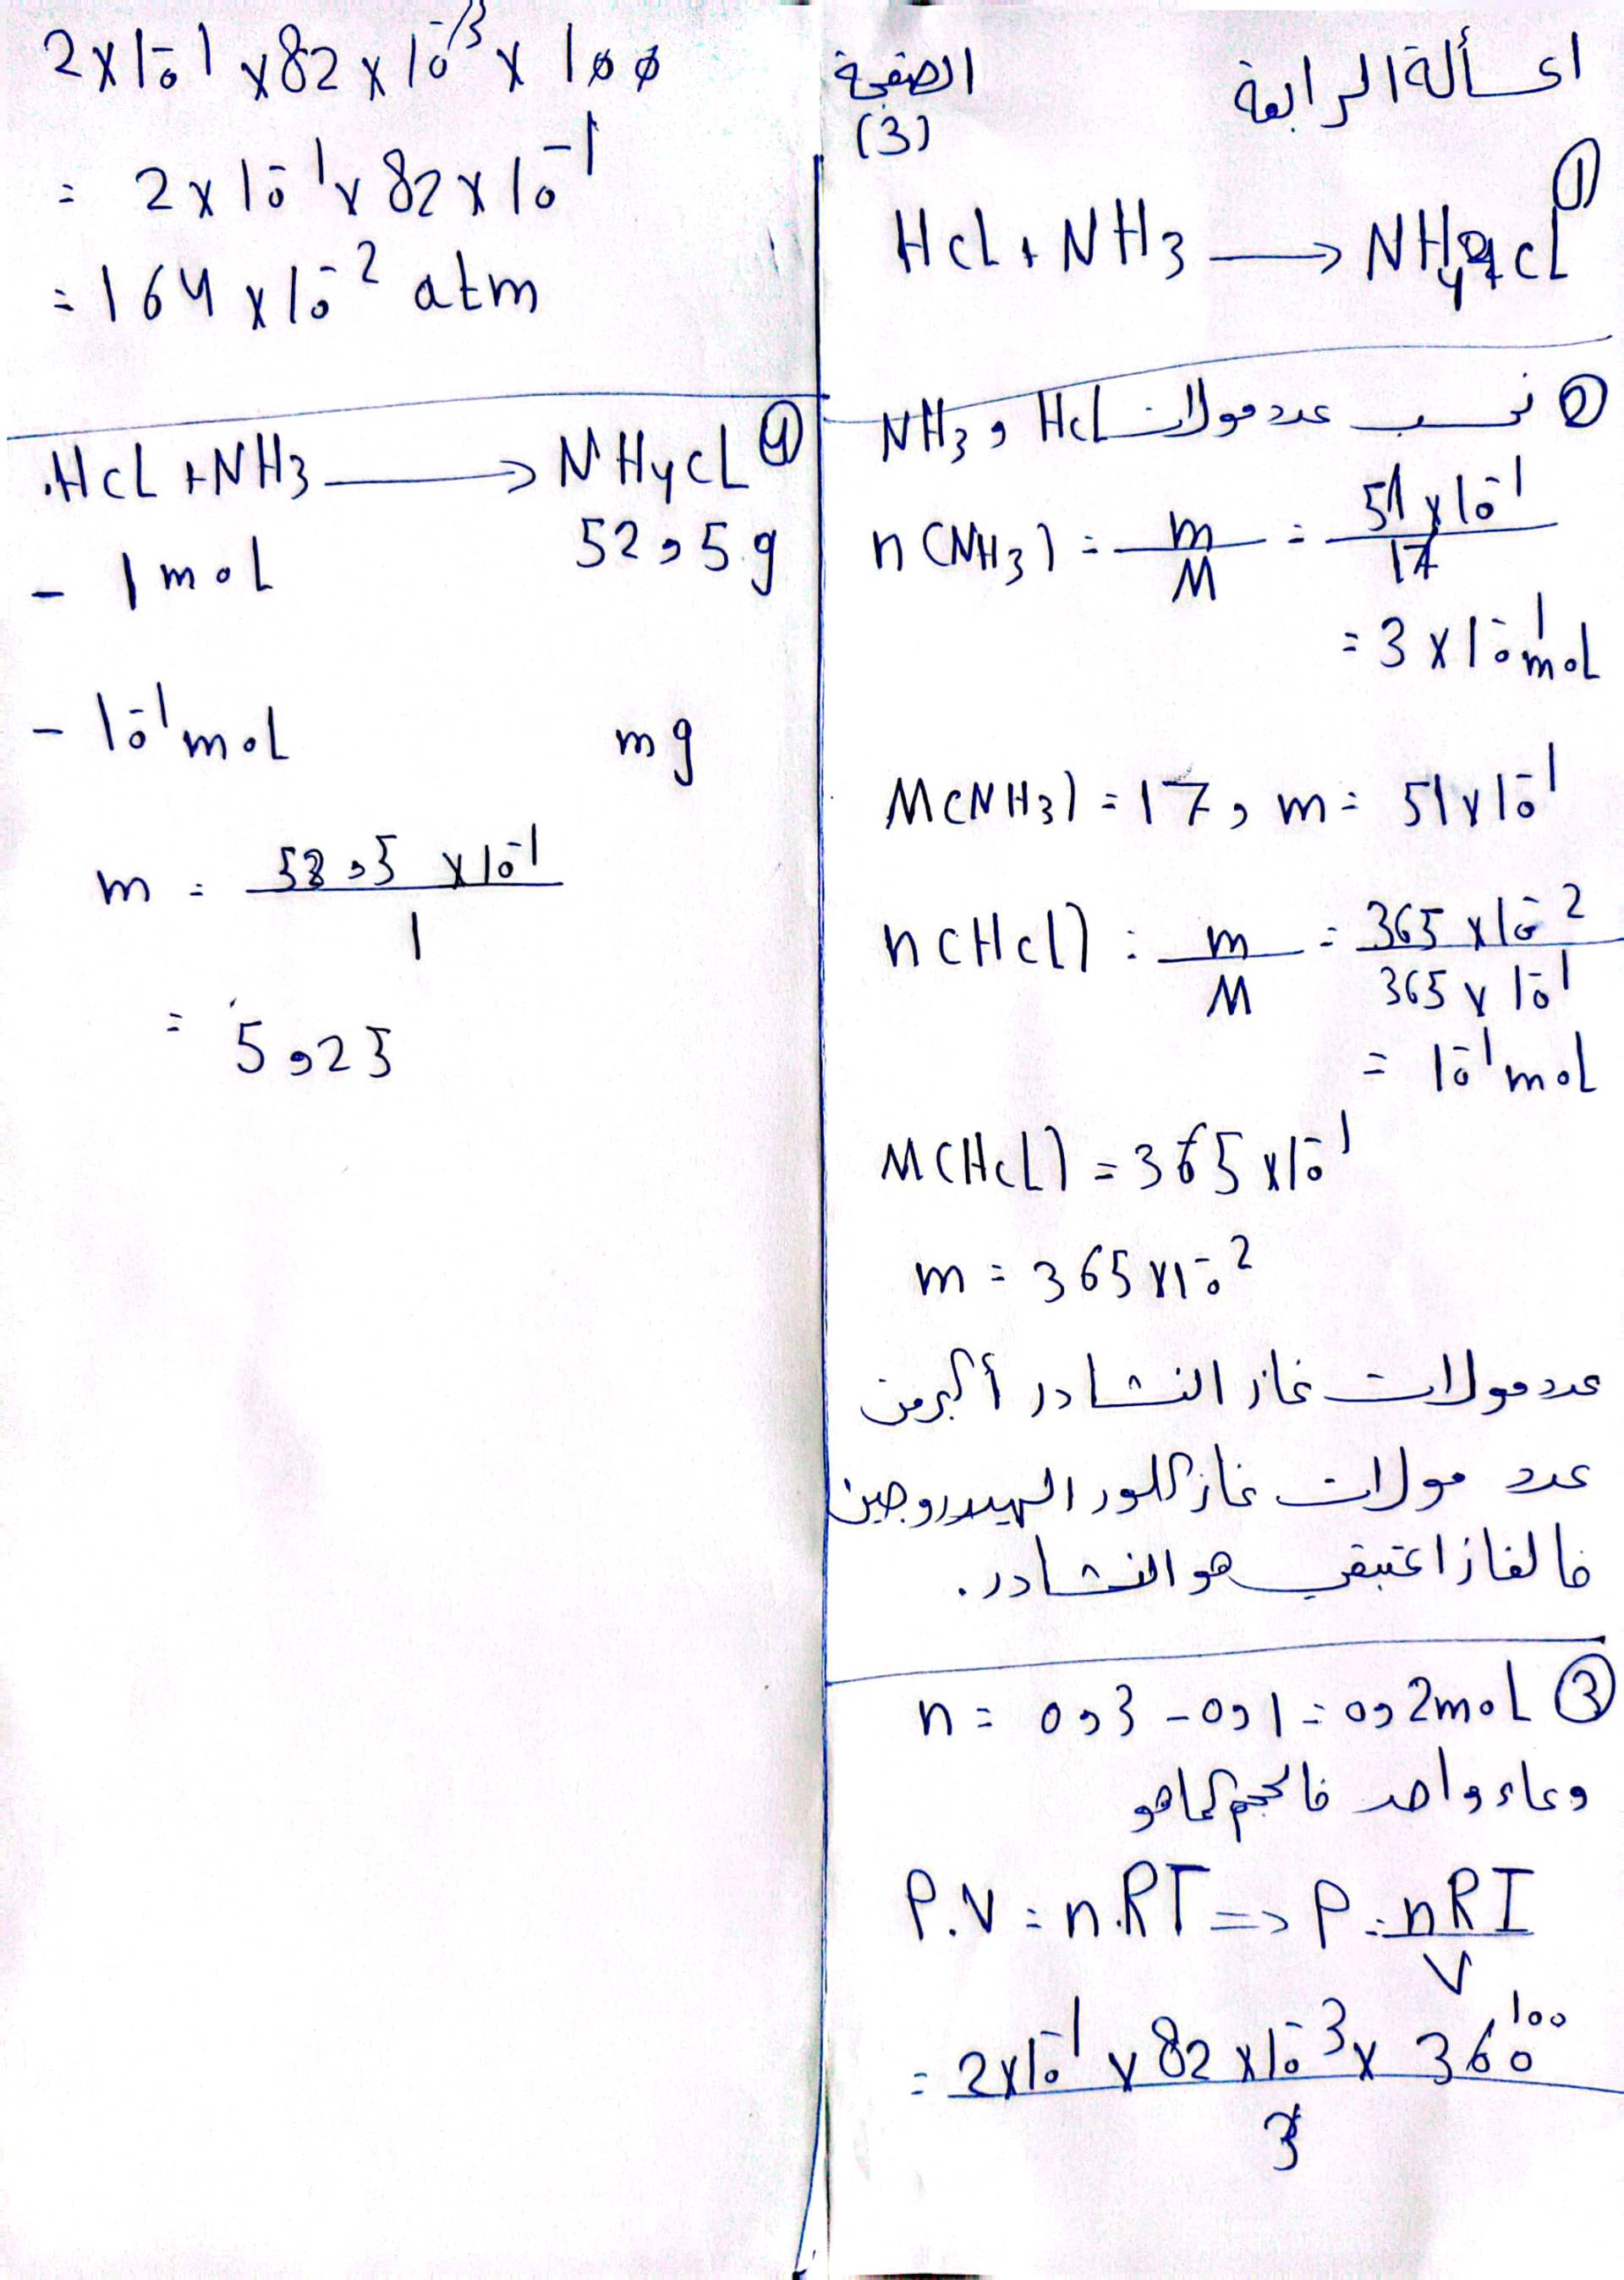 المسألة الرابعة
الصفحة
(3)
①
HCl + NH3 → NH4Cl
② نحسب عدد مولات HCl و NH3
n(NH3) = m/M = 51 × 10^-1 / 17
= 3 × 10^-1 mol
M(NH3) = 17 , m = 51 × 10^-1
n(HCl) = m/M = 365 × 10^-2 / 365 × 10^-1
= 10^-1 mol
M(HCl) = 365 × 10^-1
m = 365 × 10^-2
عدد مولات غاز النشادر أكبر من
عدد مولات غاز كلور الهيدروجين
فالغاز المتبقي هو النشادر.
③ n = 0,3 - 0,1 = 0,2 mol
وعاء واحد فالحجم كما هو
P.V = n.RT => P = nRT/V
= 2 × 10^-1 × 82 × 10^-3 × 300 / 3
2 × 10^-1 × 82 × 10^-3 × 100
= 2 × 10^-1 × 82 × 10^-1
= 164 × 10^-2 atm
④
HCl + NH3 → NH4Cl
- 1 mol 52,5 g
- 10^-1 mol m g
m = 52,5 × 10^-1 / 1
= 5,25